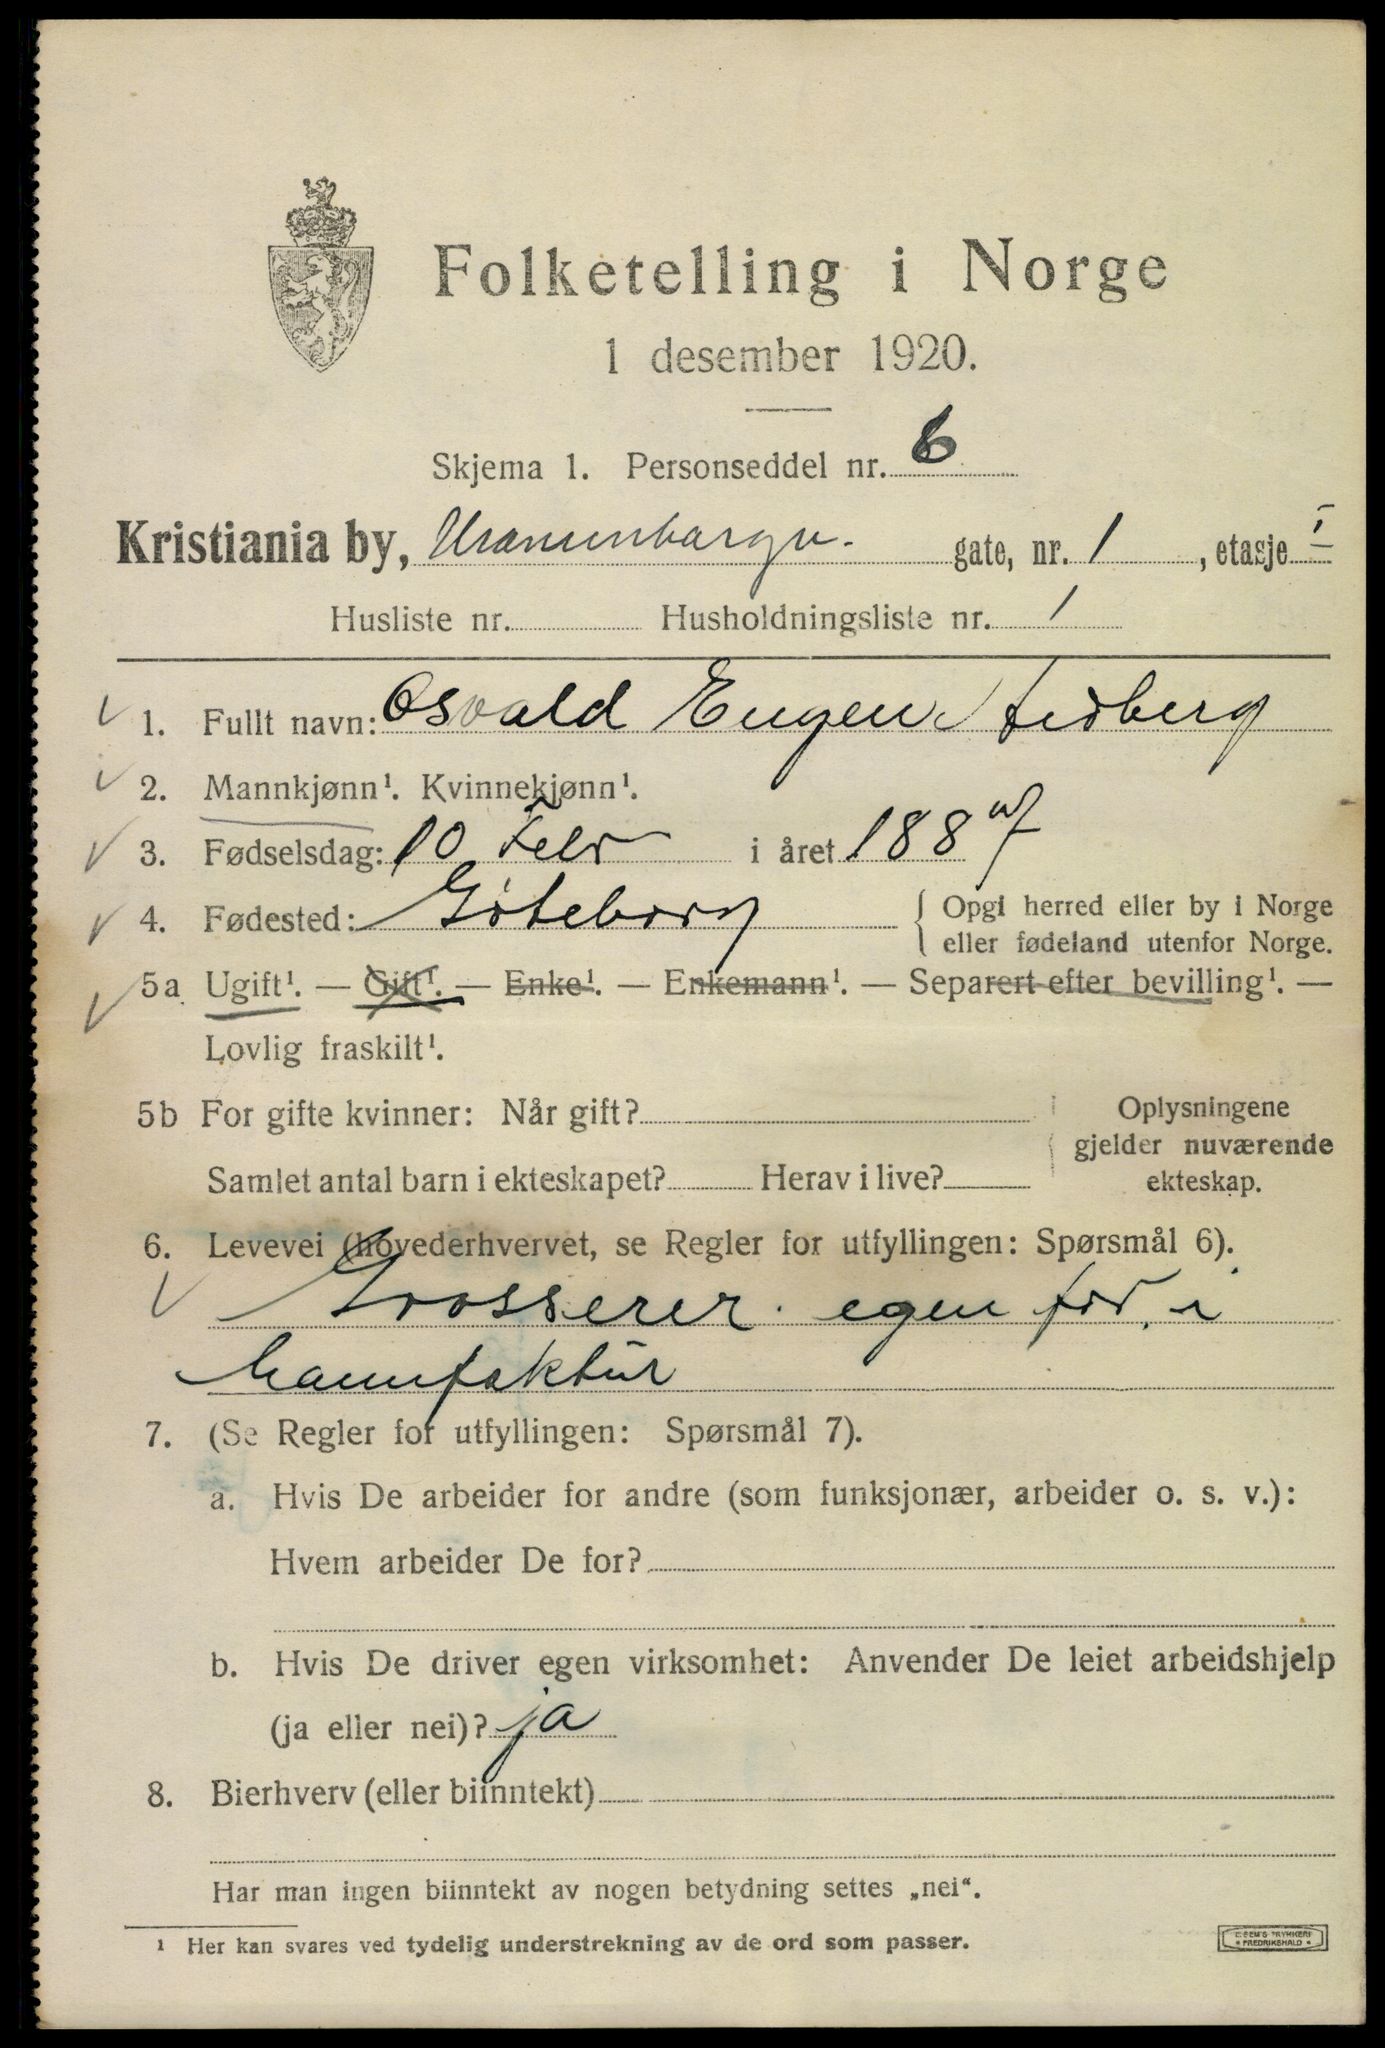 Folketelling i Norge
1 desember 1920.
Skjema 1. Personseddel nr. 6
Kristiania by, Uranienborgv. gate, nr. 1, etasje I
Husliste nr. Husholdningsliste nr. 1
1. Fullt navn: Osvald Eugen Hedberg
2. Mannkjønn¹. Kvinnekjønn¹.
3. Fødselsdag: 10 Febr i året 1887
4. Fødested: Gøteborg { Opgi herred eller by i Norge
eller fødeland utenfor Norge.
5a Ugift¹. — Gift¹. — Enke¹. — Enkemann¹. — Separert efter bevilling¹. —
Lovlig fraskilt¹.
5b For gifte kvinner: Når gift? Oplysningene
gjelder nuværende
Samlet antal barn i ekteskapet? Herav i live? ekteskap.
6. Levevei (hovederhvervet, se Regler for utfyllingen: Spørsmål 6).
Grosserer. egen for. i
Manufaktur
7. (Se Regler for utfyllingen: Spørsmål 7).
a. Hvis De arbeider for andre (som funksjonær, arbeider o. s. v.):
Hvem arbeider De for?
b. Hvis De driver egen virksomhet: Anvender De leiet arbeidshjelp
(ja eller nei)? ja
8. Bierhverv (eller biinntekt)
Har man ingen biinntekt av nogen betydning settes „nei“.
¹ Her kan svares ved tydelig understrekning av de ord som passer.
FREDRIKSHALD